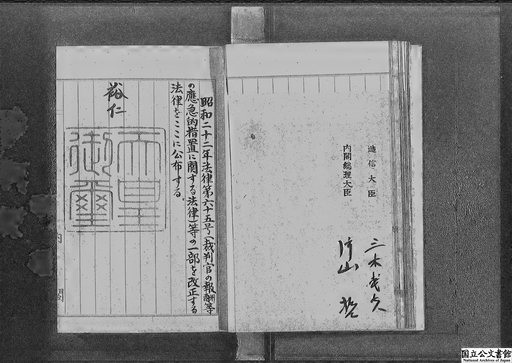 逓信大臣
三木武夫
内閣総理大臣
片山哲
昭和二十二年法律第六十五号(裁判官の報酬等
の應急的措置に関する法律)等の一部を改正する
法律をここに公布する。
裕仁
天皇
御璽
内閣
国立公文書館
National Archives of Japan